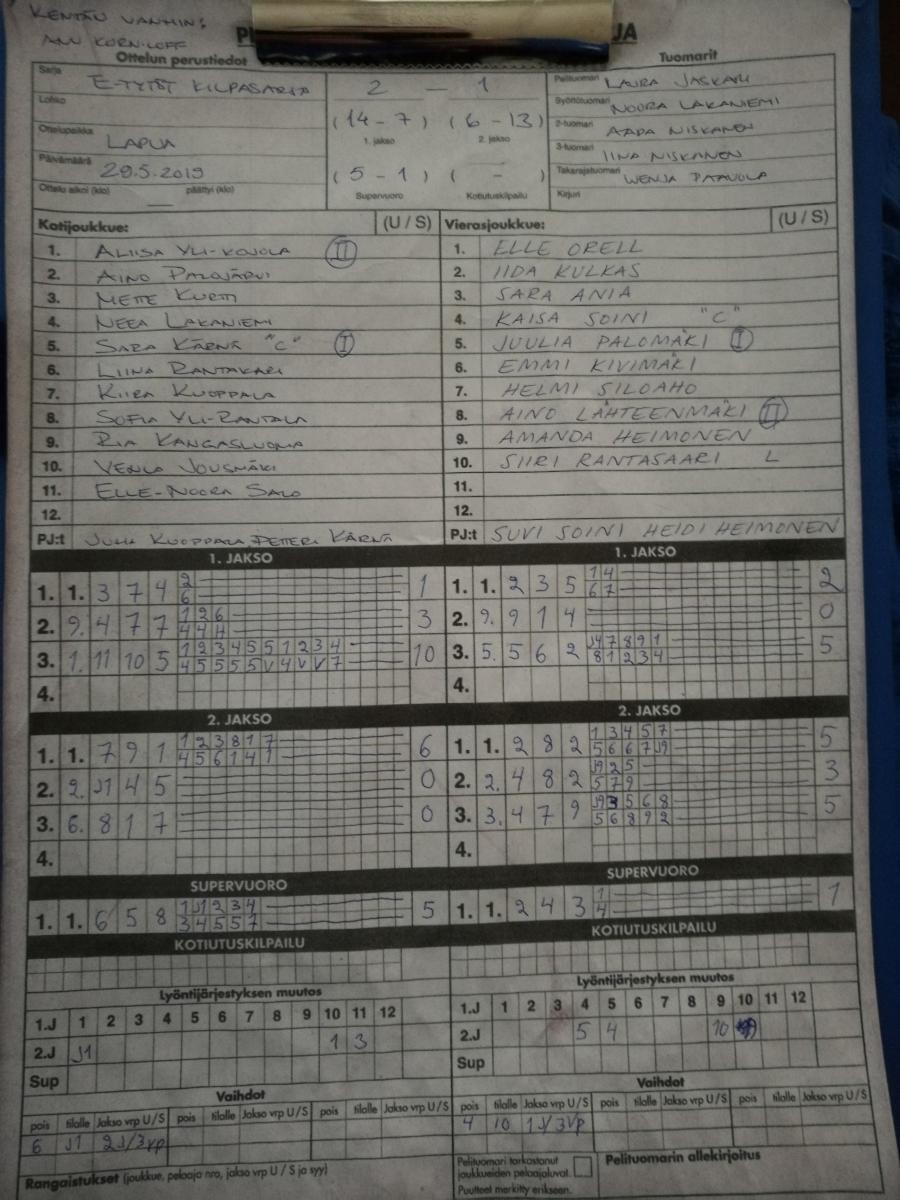 KENTÄN VANHIN:
ANU KORNILOFF
Ottelun perustiedot
Tuomarit
Sarja E-TYTÖT KILPASARJA
2 - 1
Pelituomari LAURA JASKARI
Lohko
(14 - 7) (6 - 13)
Syöttötuomari NOORA LAKANIEMI
1. jakso 2. jakso
2-tuomari AADA NISKANEN
Ottelupaikka LAPUA
3-tuomari IINA NISKANEN
Päivämäärä 29.5.2019
(5 - 1) ( - )
Takarajatuomari WENJA PAAVOLA
Ottelu alkoi (klo) päättyi (klo)
Supervuoro Kotiutuskilpailu
Kirjuri
Kotijoukkue: (U / S) Vierasjoukkue: (U / S)
1. ALIISA YLI-KOJOLA II 1. ELLE ORELL
2. AINO PALOJÄRVI 2. IIDA KULKAS
3. METTE KURTTI 3. SARA ANIA
4. NEEA LAKANIEMI 4. KAISA SOINI "C"
5. SARA KÄRNÄ "C" I 5. JUULIA PALOMÄKI I
6. LIINA RANTAKARI 6. EMMI KIVIMÄKI
7. KIIRA KUOPPALA 7. HELMI SILOAHO
8. SOFIA YLI-RANTALA 8. AINO LÄHTEENMÄKI II
9. RIA KANGASLUOMA 9. AMANDA HEIMONEN
10. VENLA JOUSMÄKI 10. SIIRI RANTASAARI L
11. ELLE-NOORA SALO 11.
12. 12.
PJ:t JUHA KUOPPALA, PETTERI KÄRNÄ PJ:t SUVI SOINI HEIDI HEIMONEN
1. JAKSO 1. JAKSO
1. 1. 3 7 4 2 1 1. 1. 2 3 5 1 4 2
6 6 7
2. 9. 4 7 7 1 2 6 3 2. 9. 9 1 4 0
4 4 4
3. 1. 11 10 5 1 2 3 4 5 5 1 2 3 4 10 3. 5. 5 6 2 J4 7 8 9 1 5
4 5 5 5 5 V 4 V V 7 8 1 2 3 4
4. 4.
2. JAKSO 2. JAKSO
1. 1. 7 9 1 1 2 3 8 1 7 6 1. 1. 2 8 2 1 3 4 5 7 5
4 5 6 1 4 1 5 6 6 7 J9
2. 2. J1 4 5 0 2. 2. 4 8 2 J9 2 5 3
5 7 9
3. 6. 8 1 7 0 3. 3. 4 7 9 J9 3 5 6 8 5
5 6 8 9 2
4. 4.
SUPERVUORO SUPERVUORO
1. 1. 6 5 8 1 J1 2 3 4 5 1. 1. 2 4 3 1 1
3 4 5 5 7 4
KOTIUTUSKILPAILU KOTIUTUSKILPAILU
Lyöntijärjestyksen muutos Lyöntijärjestyksen muutos
1.J 1 2 3 4 5 6 7 8 9 10 11 12 1.J 1 2 3 4 5 6 7 8 9 10 11 12
2.J J1 1 3 2.J 5 4 10
Sup Sup
Vaihdot Vaihdot
pois tilalle Jakso vrp U/S pois tilalle Jakso vrp U/S pois tilalle Jakso vrp U/S pois tilalle Jakso vrp U/S pois tilalle Jakso vrp U/S pois tilalle Jakso vrp U/S
6 J1 2J/3vp 4 10 1J/3vp
Rangaistukset (joukkue, pelaaja nro, jakso vrp U / S ja syy)
Pelituomari tarkastanut joukkueiden pelaajaluvat.
Puutteet merkitty erikseen.
Pelituomarin allekirjoitus